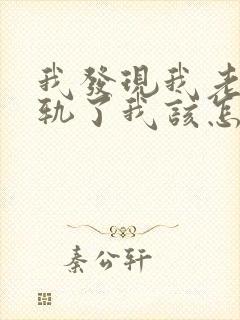 我發現我老
軌了我該怎
秦公轩